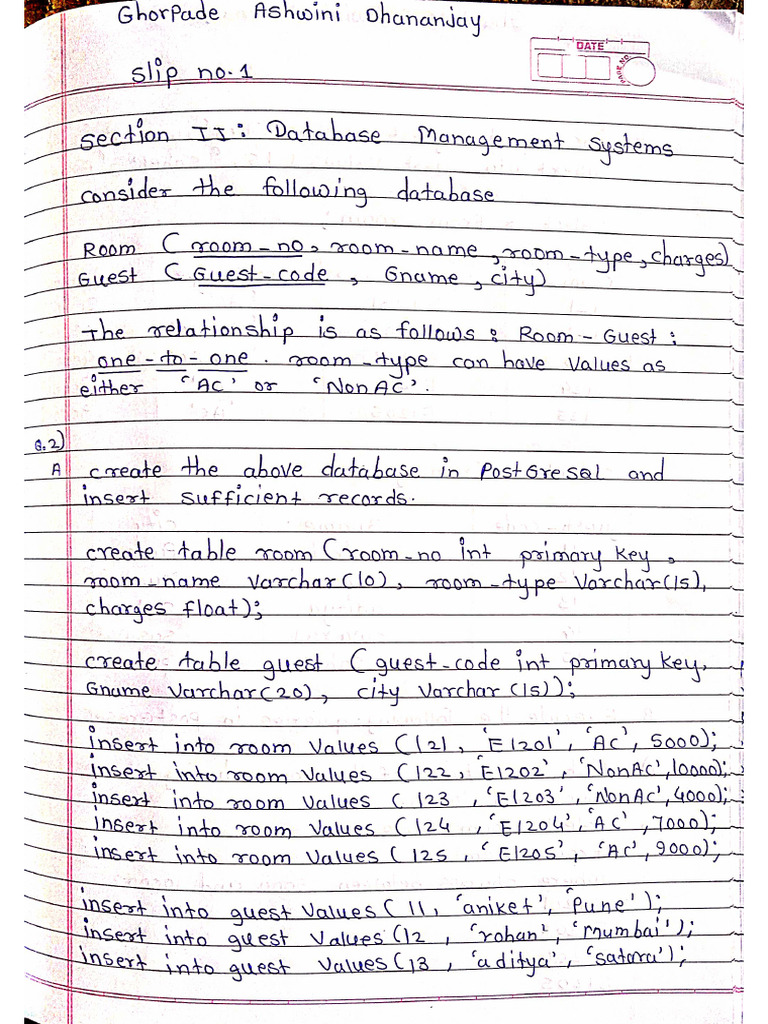 Ghorpade Ashwini Dhananjay
DATE
PAGE NO
Slip no. 1
Section II : Database Management Systems
consider the following database
Room ( room-no, room-name, room-type, charges)
Guest ( Guest-code , Gname , city)
The relationship is as follows : Room - Guest :
one-to-one . room-type can have values as
either 'AC' or 'NonAC'.
Q.2)
A create the above database in PostGresql and
insert sufficient records.
create table room (room-no int primary key ,
room-name varchar(10), room-type varchar(15),
charges float);
create table guest (guest-code int primary key,
Gname varchar(20), city varchar (15));
insert into room values (121, 'E1201', 'AC', 5000);
insert into room values (122, 'E1202', 'NonAC', 10000);
insert into room values ( 123 , 'E1203', 'NonAC', 4000);
insert into room values (124 , 'E1204', 'AC' , 7000);
insert into room values ( 125 , 'E1205', 'AC', 9000);
insert into guest values ( 11, 'aniket', 'pune');
insert into guest values (12 , 'rohan', 'mumbai');
insert into guest values (13 , 'aditya', 'satara');